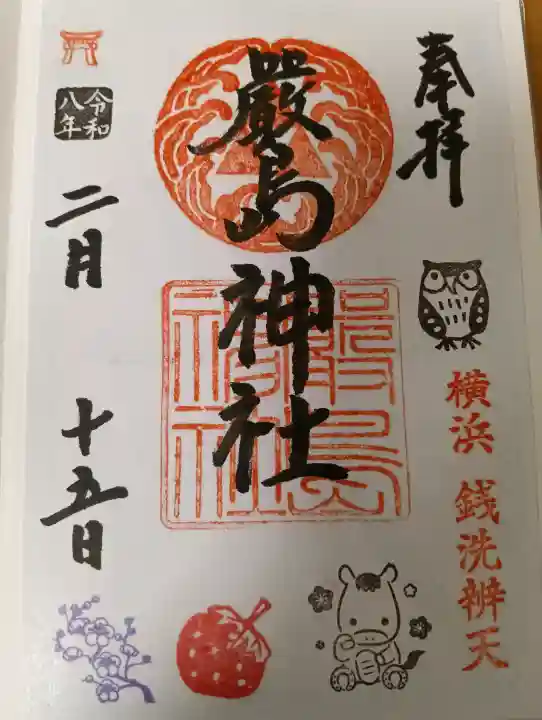 奉拝
横浜 銭洗辨天
嚴島神社
嚴島神社
令和八年
二月十五日